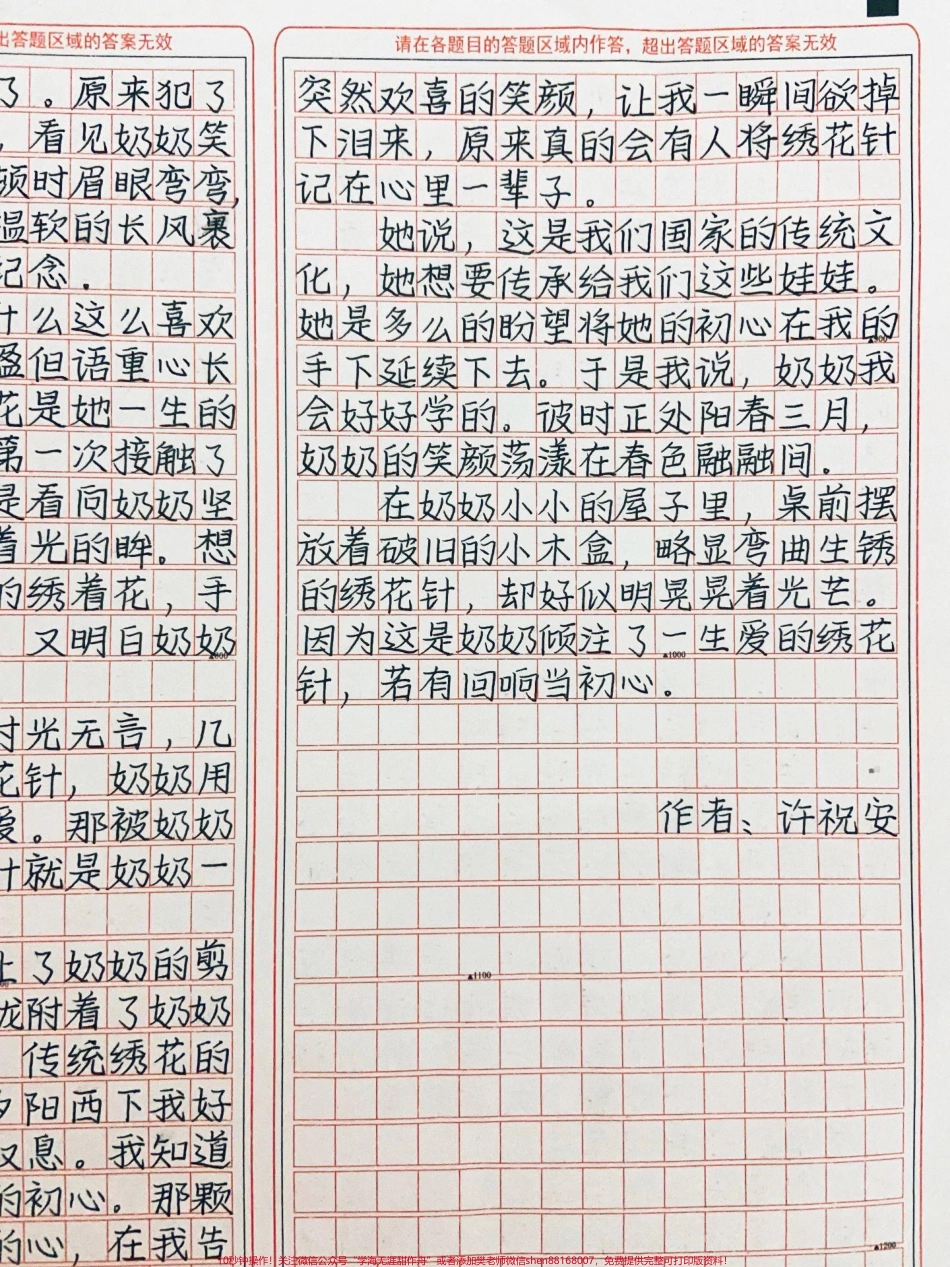 出答题区域的答案无效
了。原来犯了
，看见奶奶笑
顿时眉眼弯弯，
温软的长风裹
纪念.
什么这么喜欢
盈但语重心长
花是她一生的
第一次接触了
是看向奶奶坚
着光的眸。想
的绣着花，手
又明白奶奶
时光无言，几
花针，奶奶用
爱。那被奶奶
针就是奶奶一
上了奶奶的剪
附着了奶奶
传统绣花的
夕阳西下我好
叹息。我知道
的初心。那颗
的心，在我告
请在各题目的答题区域内作答，超出答题区域的答案无效
突然欢喜的笑颜，让我一瞬间欲掉
下泪来，原来真的会有人将绣花针
记在心里一辈子。
她说，这是我们国家的传统文
化，她想要传承给我们这些娃娃。
她是多么的盼望将她的初心在我的
▲900
手下延续下去。于是我说，奶奶我
会好好学的。彼时正处阳春三月，
奶奶的笑颜荡漾在春色融融间.
在奶奶小小的屋子里，桌前摆
放着破旧的小木盒，略显弯曲生锈
的绣花针，却好似明晃晃着光芒。
因为这是奶奶倾注了一生爱的绣花
▲1000
针，若有回响当初心。
作者：许祝安
▲1100
▲1200
10秒钟操作！关注微信公众号“学海无涯甜作舟”或者添加樊老师微信shen88168007，免费提供完整可打印版资料！